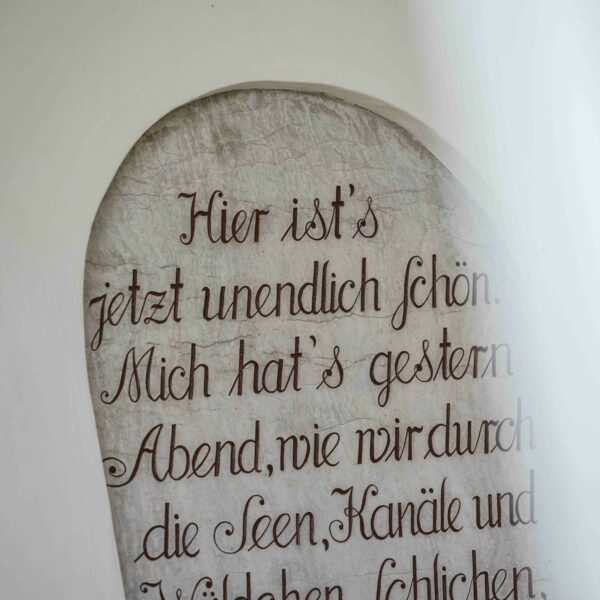 Hier ist's
jetzt unendlich schön.
Mich hat's gestern
Abend, wie wir durch
die Seen, Kanäle und
Wäldchen schlichen,